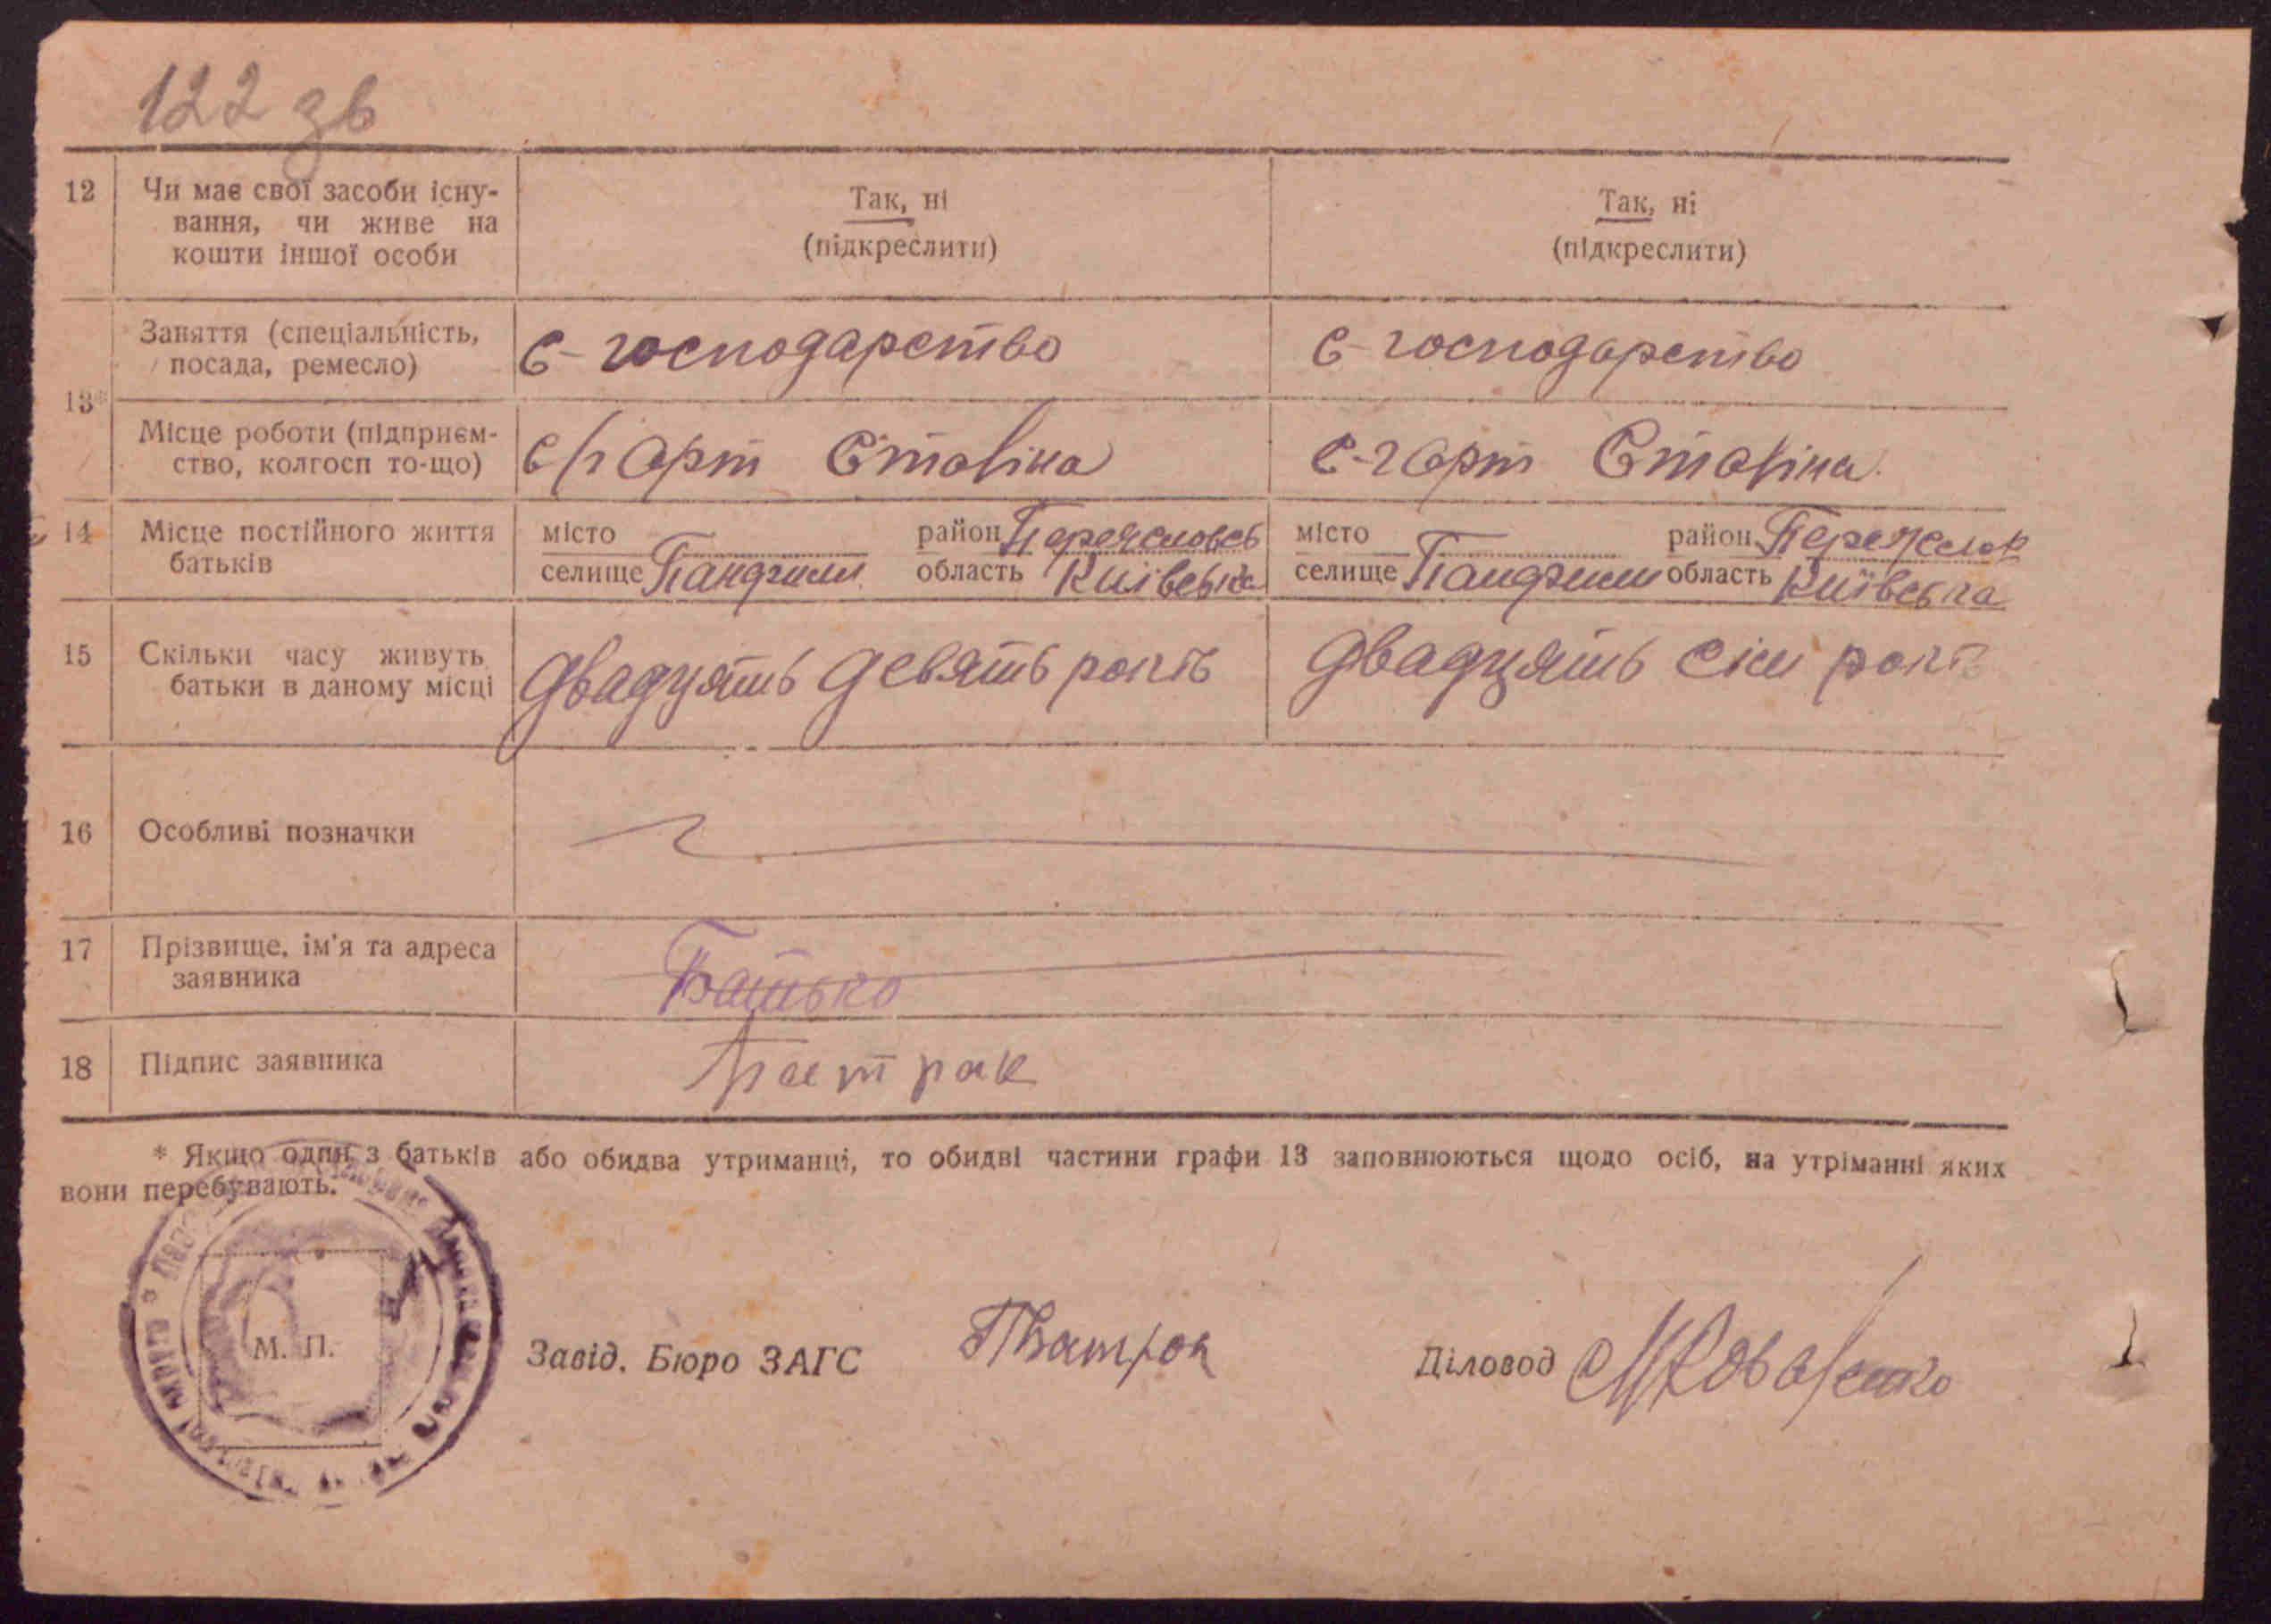 122 зв
12 Чи має свої засоби існу- Так, ні Так, ні
вання, чи живе на (підкреслити) (підкреслити)
кошти іншої особи
13* Заняття (спеціальність, с-господарство с-господарство
посада, ремесло)
Місце роботи (підприєм- с/г арт Сталіна с-г арт Сталіна
ство, колгосп то-що)
14 Місце постійного життя місто район Переяславсь місто район Переяслав
батьків селище Пандзили область Київська селище Пандзили область Київська
15 Скільки часу живуть двадцять девять років двадцять сім років
батьки в даному місці
16 Особливі позначки
17 Прізвище, ім'я та адреса Батько
заявника
18 Підпис заявника
* Якщо один з батьків або обидва утриманці, то обидві частини графи 13 заповнюються щодо осіб, на утріманні яких
вони перебувають.
М. П.
Завід. Бюро ЗАГС Діловод МКоваленко